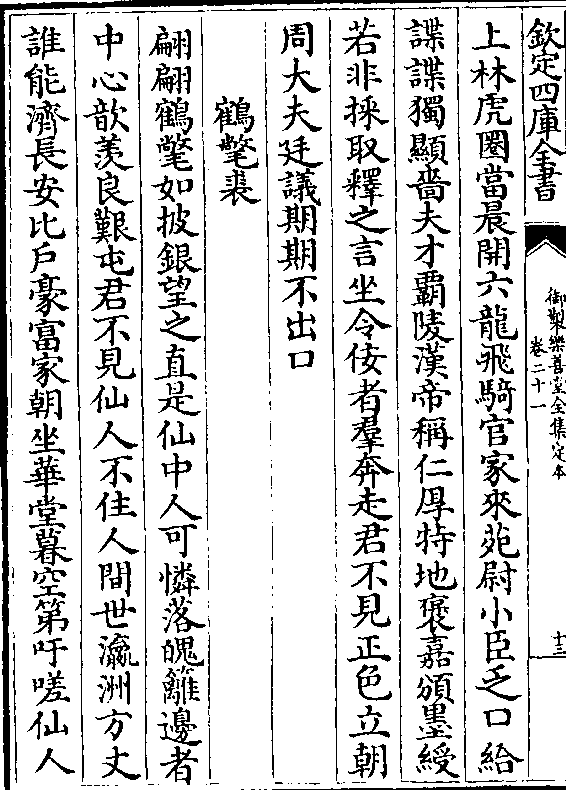 欽定四庫全書
御製樂善堂全集定本
卷二十一
十三
上林虎圈當晨開六龍飛騎官家來苑尉小臣乏口給
諜諜獨顯嗇夫才霸陵漢帝稱仁厚特地褒嘉頒墨綬
若非採取釋之言坐令佞者羣奔走君不見正色立朝
周大夫廷議期期不出口
鶴氅裘
翩翩鶴氅如披銀望之直是仙中人可憐落魄籬邊者
中心歆羨良艱屯君不見仙人不住人間世瀛洲方丈
誰能濟長安比戶豪富家朝坐華堂暮空第吁嗟仙人